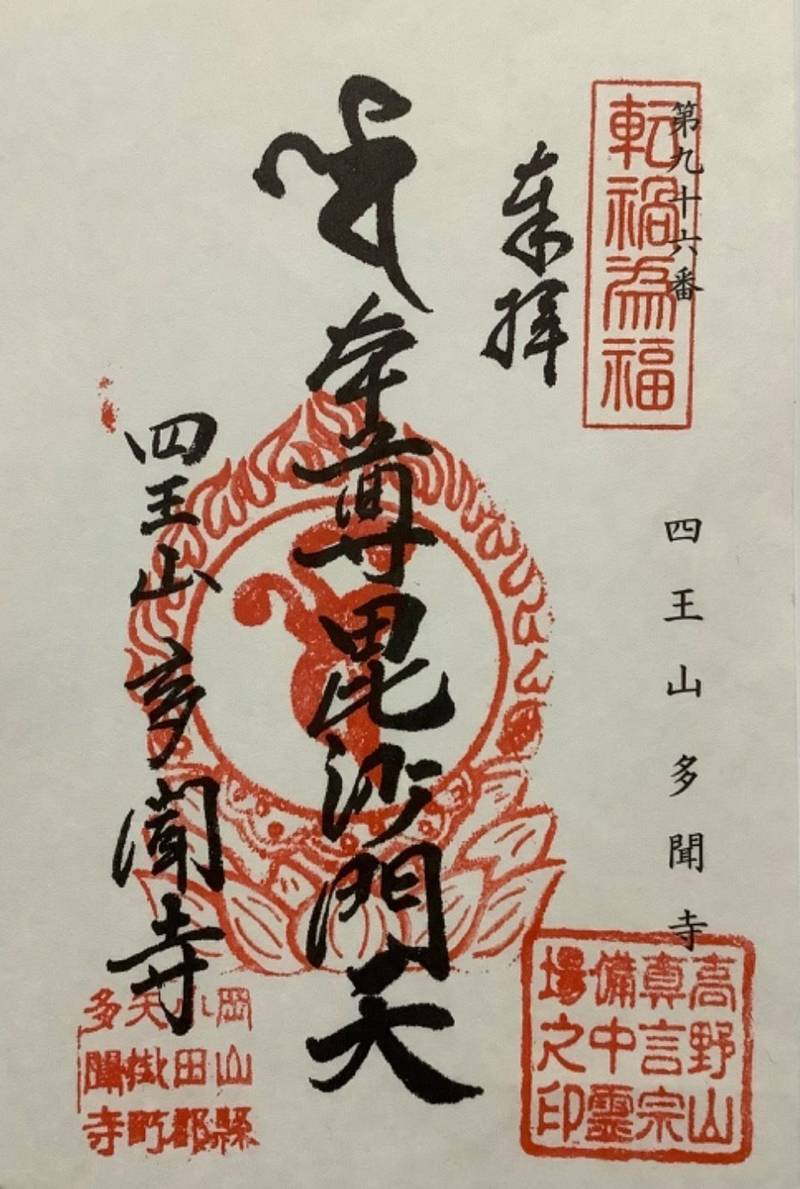 第九十六番
四王山多聞寺
転禍為福
奉拝
本尊毘沙門天
四王山多聞寺
高野山
真言宗
備中霊
場之印
岡山縣
小田郡
矢掛町
多聞寺